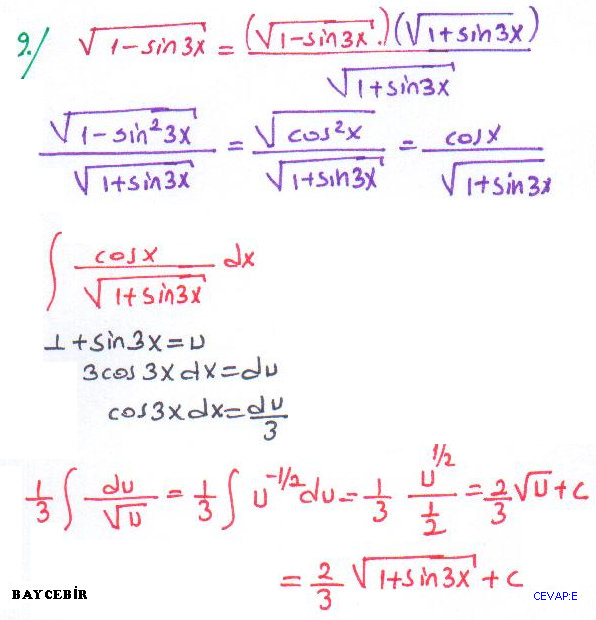 9./ √(1-sin3x) = (√(1-sin3x).)(√(1+sin3x)) / √(1+sin3x)
√(1-sin²3x) / √(1+sin3x) = √(cos²x) / √(1+sin3x) = cosx / √(1+sin3x)
∫ cosx / √(1+sin3x) dx
1+sin3x=u
3cos3xdx=du
cos3xdx=du/3
1/3 ∫ du/√u = 1/3 ∫ u^(-1/2) du = 1/3 u^(1/2) / (1/2) = 2/3 √u + c
= 2/3 √(1+sin3x) + c
BAYCEBİR CEVAP:E